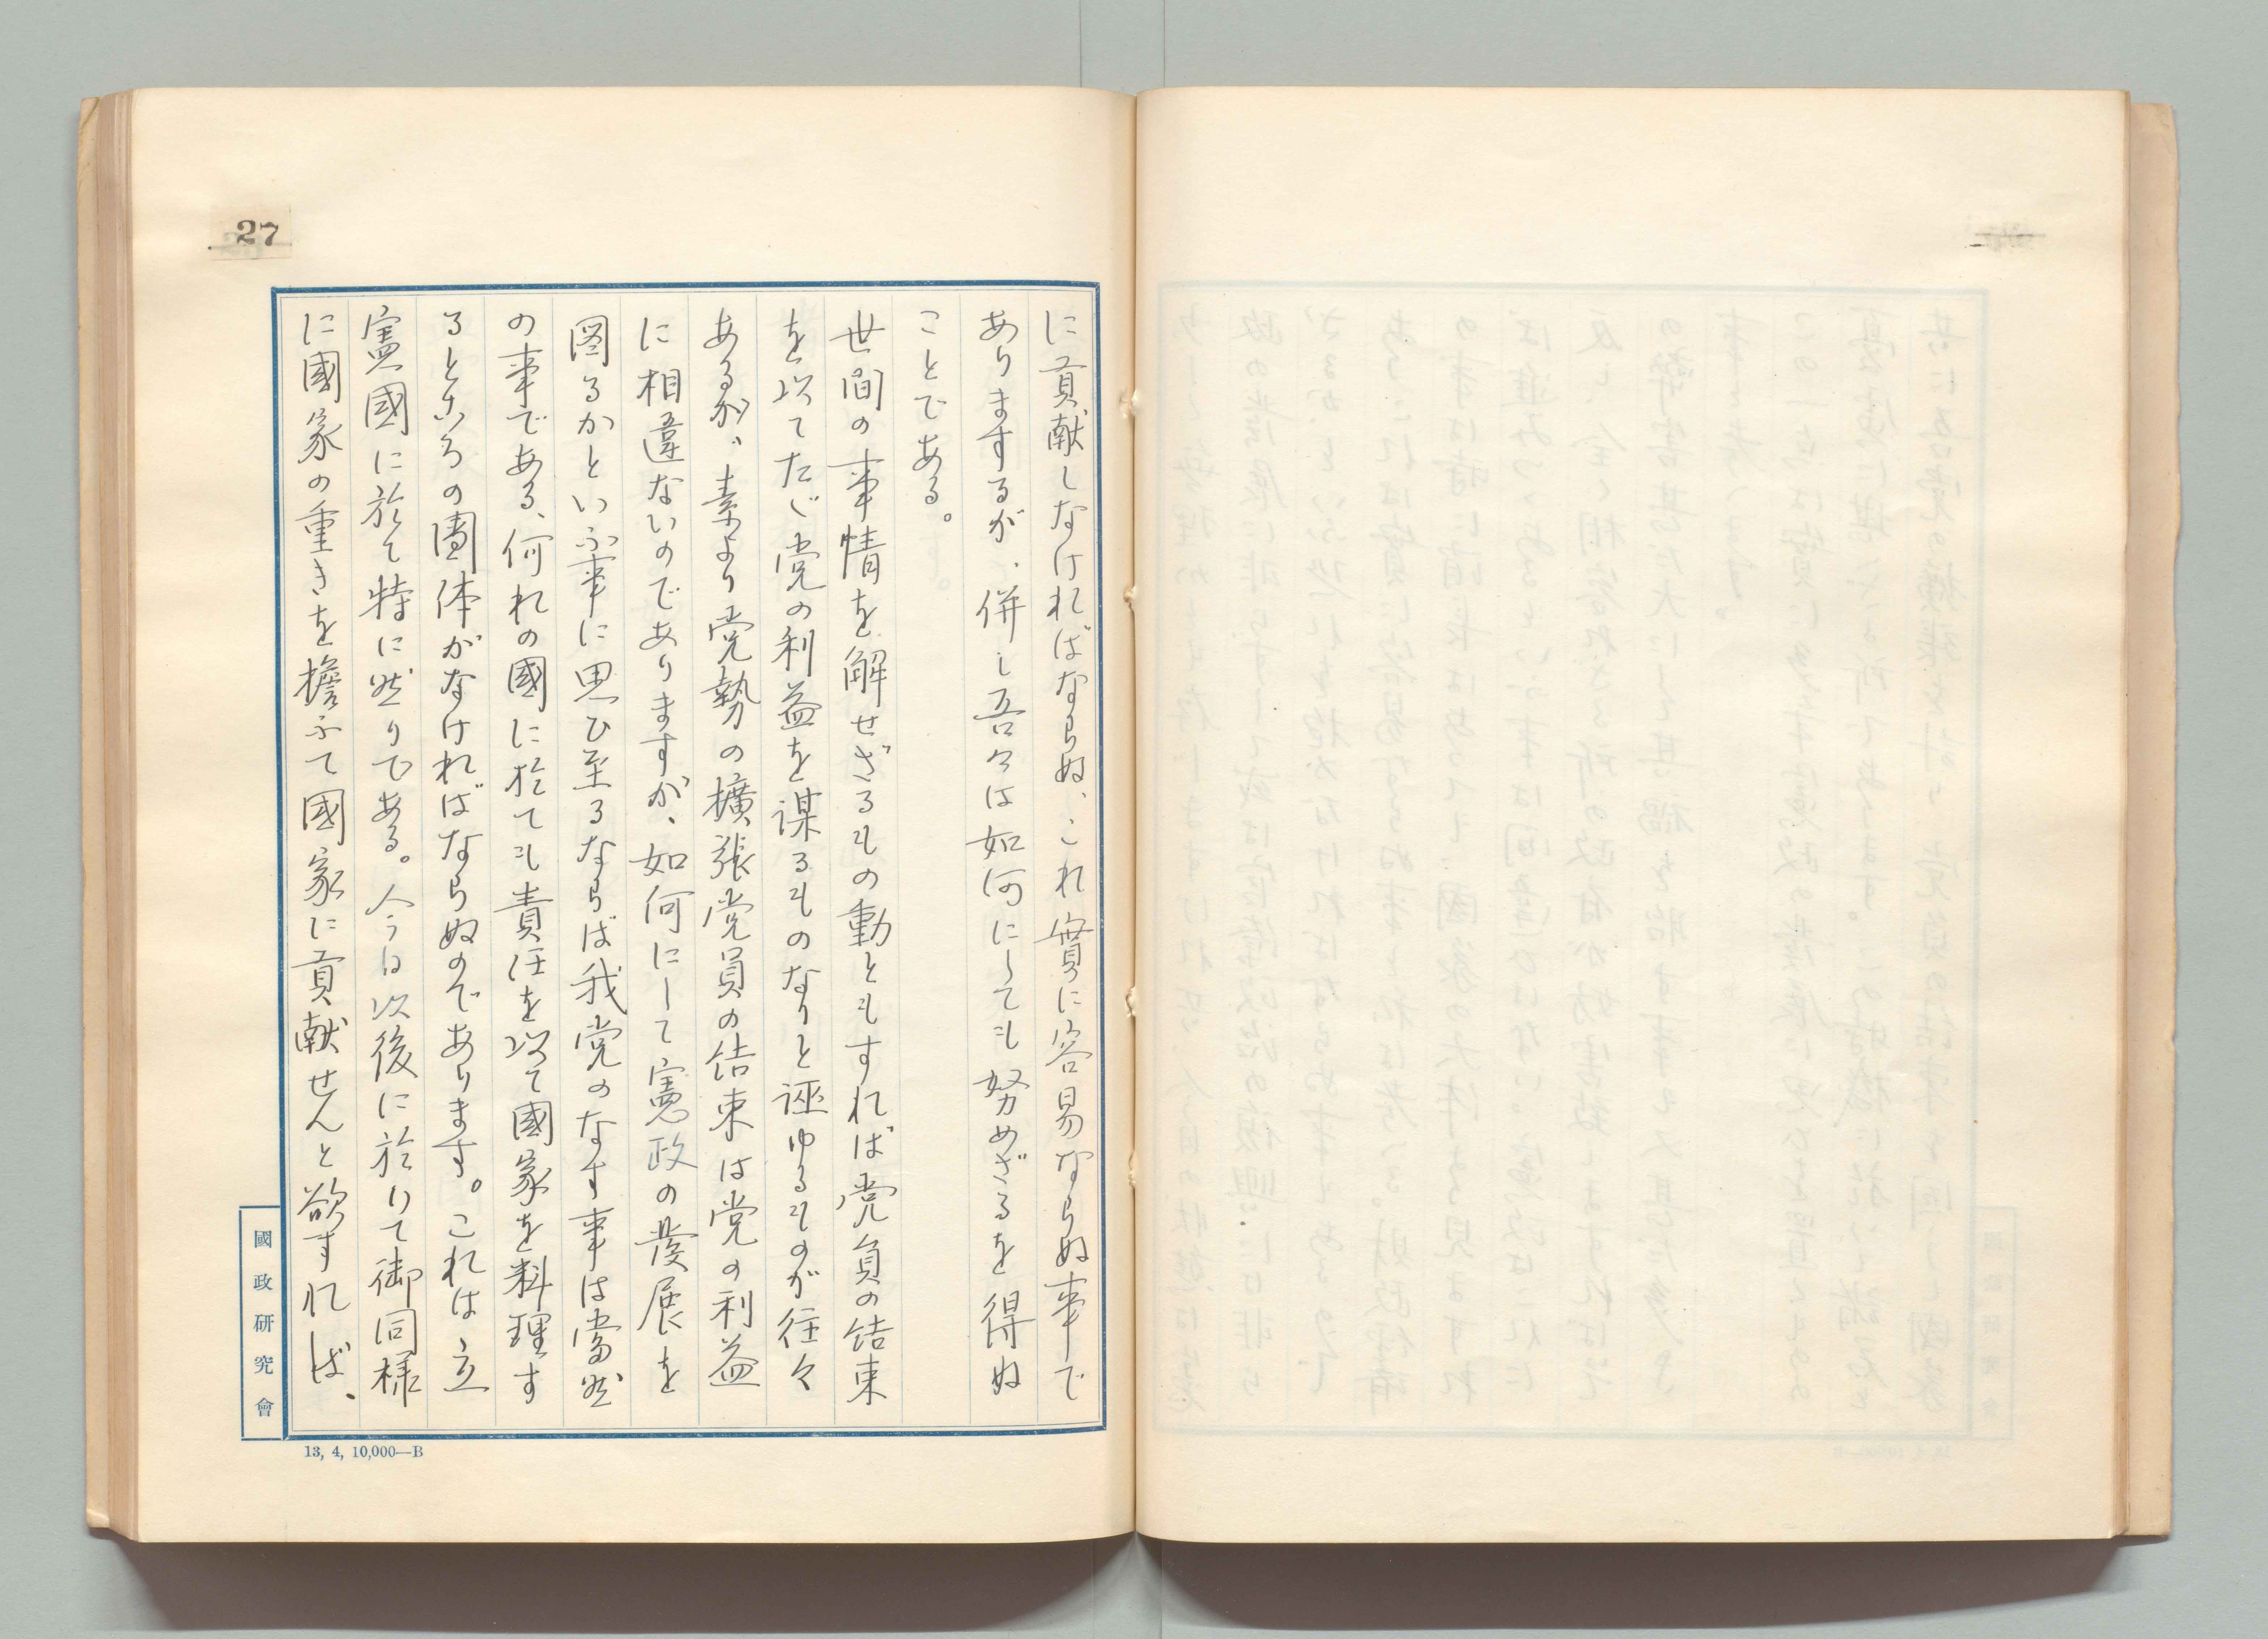 27
に貢献しなければならぬ、これ實に容易ならぬ事で
ありまするが、併し吾々は如何にしても努めざるを得ぬ
ことである。
世間の事情を解せざるもの動ともすれば党員の結束
を以てたゞ党の利益を謀るものなりと誣ゆるものが往々
あるが、素より党勢の擴張党員の結束は党の利益
に相違ないのでありますが、如何にして憲政の發展を
圖るかといふ事に思ひ至るならば我党のなす事は當然
の事である、何れの國に於ても責任を以て國家を料理す
るところの團体がなければならぬのであります。これは立
憲國に於て特に然りである。今日以後に於いて御同様
に國家の重きを擔ふて國家に貢献せんと欲すれば、
國政研究會
13, 4, 10,000—B